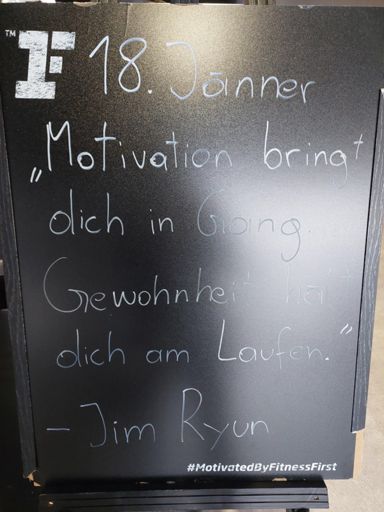 ™ 1F 18. Jänner
„Motivation bringt
dich in Gang.
Gewohnheit hält
dich am Laufen."
- Jim Ryun
#MotivatedByFitnessFirst